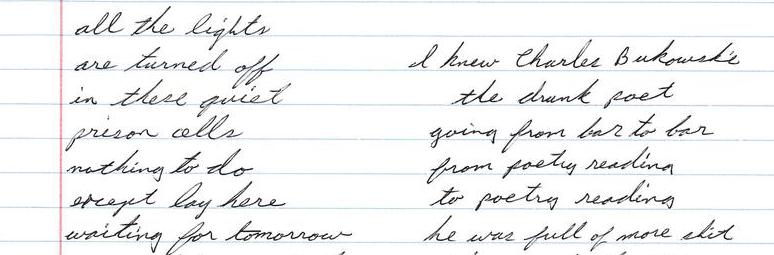 all the lights
are turned off
in these quiet
prison cells
nothing to do
except lay here
waiting for tomorrow
I knew Charles Bukowski
the drunk poet
going from bar to bar
from poetry reading
to poetry reading
he was full of more shit